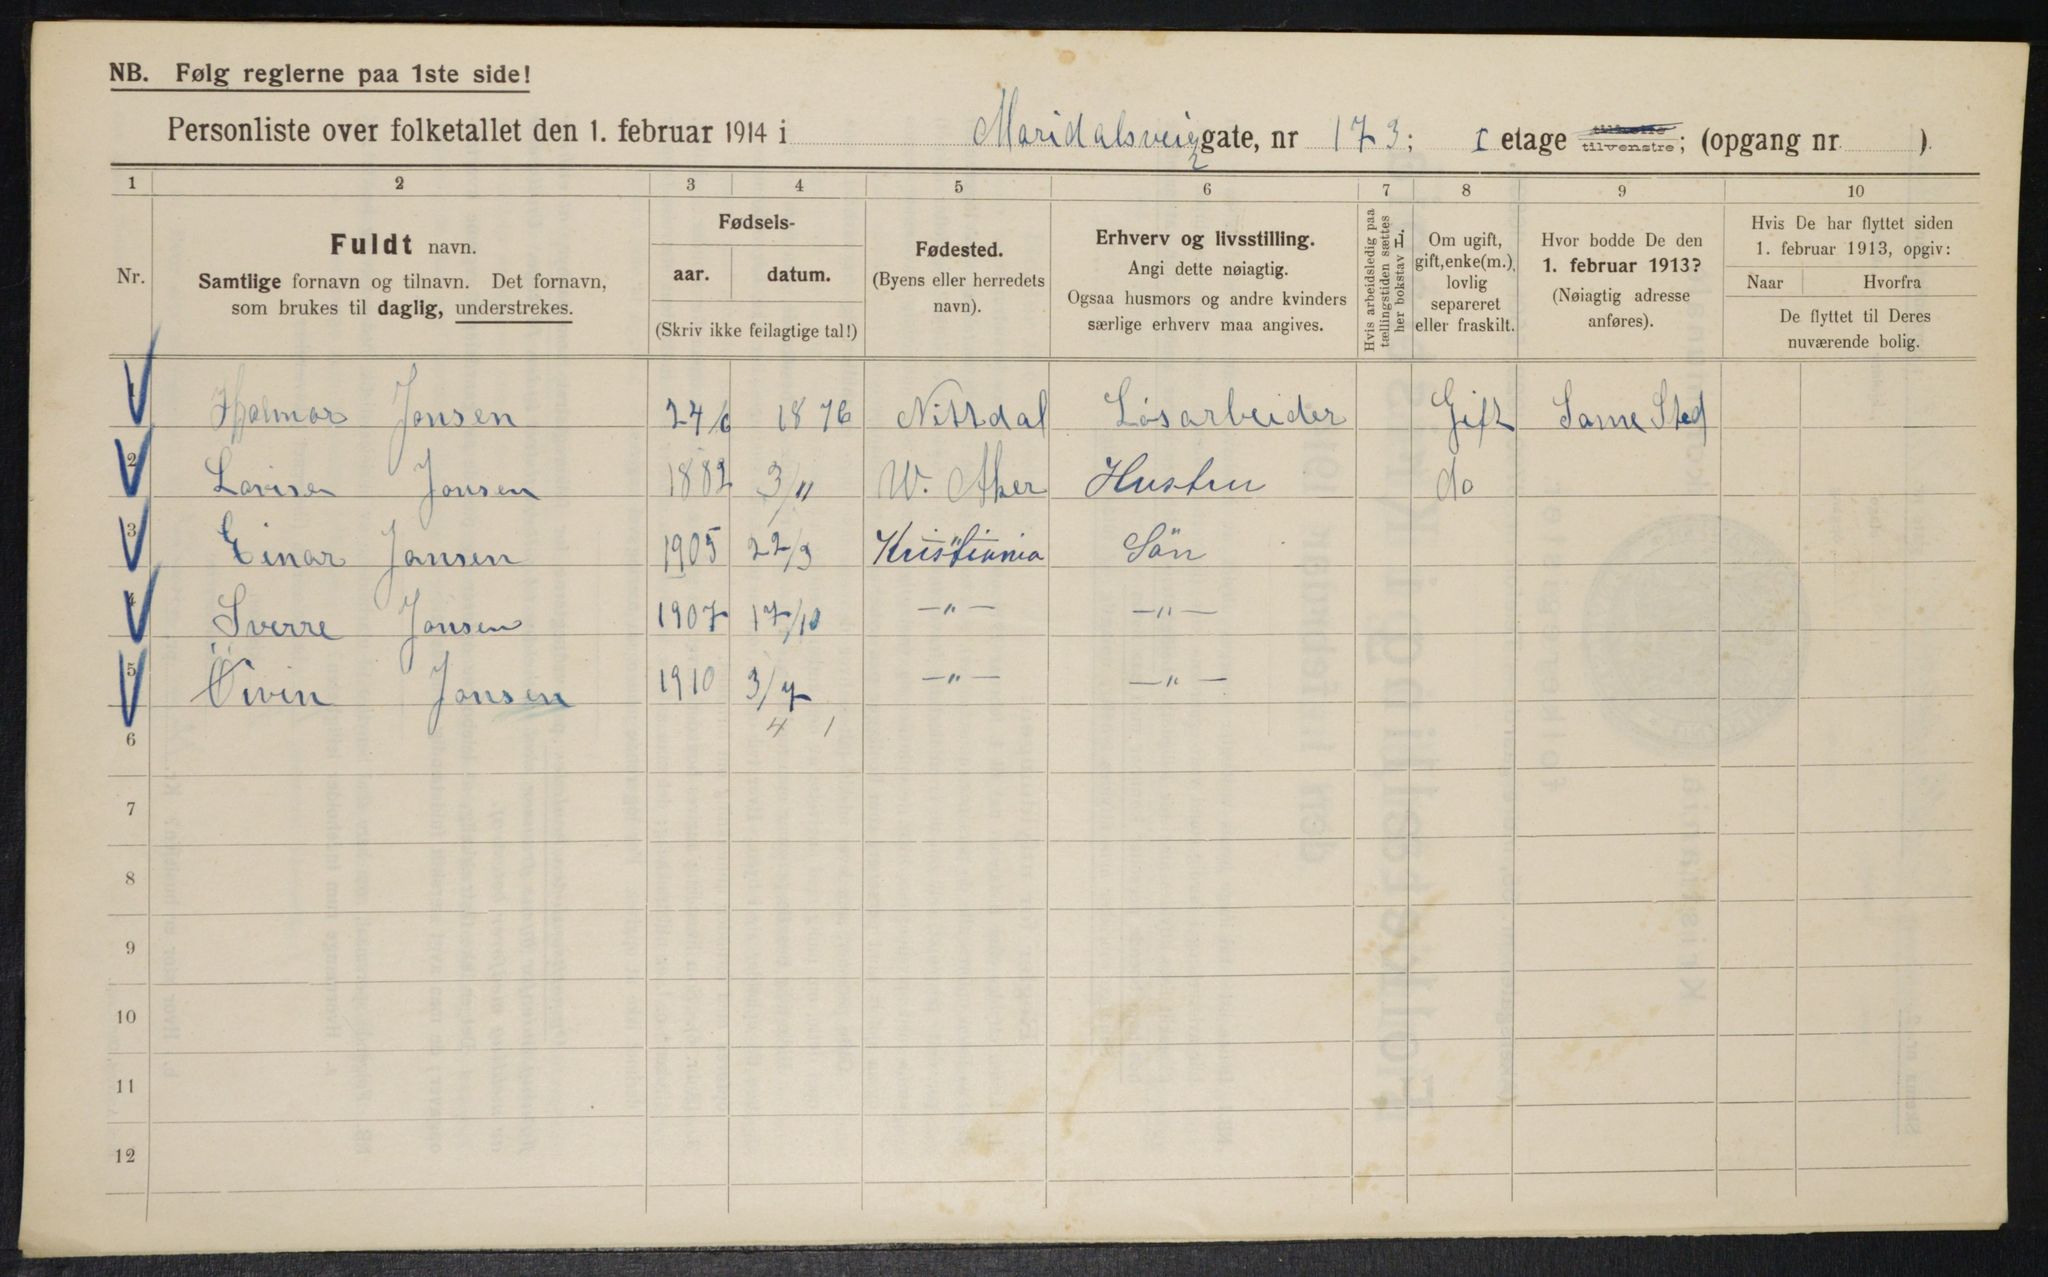 NB. Følg reglerne paa 1ste side!
Personliste over folketallet den 1. februar 1914 i Maridalsvei gate, nr 173; I etage tilhøire tilvenstre; (opgang nr )
1 2 3 4 5 6 7 8 9 10
Nr.
Fuldt navn.
Samtlige fornavn og tilnavn. Det fornavn,
som brukes til daglig, understrekes.
Fødsels-
aar. datum.
(Skriv ikke feilagtige tal!)
Fødested.
(Byens eller herredets
navn).
Erhverv og livsstilling.
Angi dette nøiagtig.
Ogsaa husmors og andre kvinders
særlige erhverv maa angives.
Hvis arbeidsledig paa
tællingstiden sættes
her bokstav H.
Om ugift,
gift, enke(m.),
lovlig
separeret
eller fraskilt.
Hvor bodde De den
1. februar 1913?
(Nøiagtig adresse
anføres).
Hvis De har flyttet siden
1. februar 1913, opgiv:
Naar Hvorfra
De flyttet til Deres
nuværende bolig.
1 Hjalmar Jansen 24/6 1876 Nittdal Løsarbeider Gift Same Sted
2 Lovise Jansen 1882 3/11 W. Aker Hustru do
3 Einar Jansen 1905 22/3 Kristiania Sön
4 Sverre Jansen 1907 17/10 —"— —"—
5 Öivin Jansen 1910 3/7 —"— —"—
4 1
6
7
8
9
10
11
12